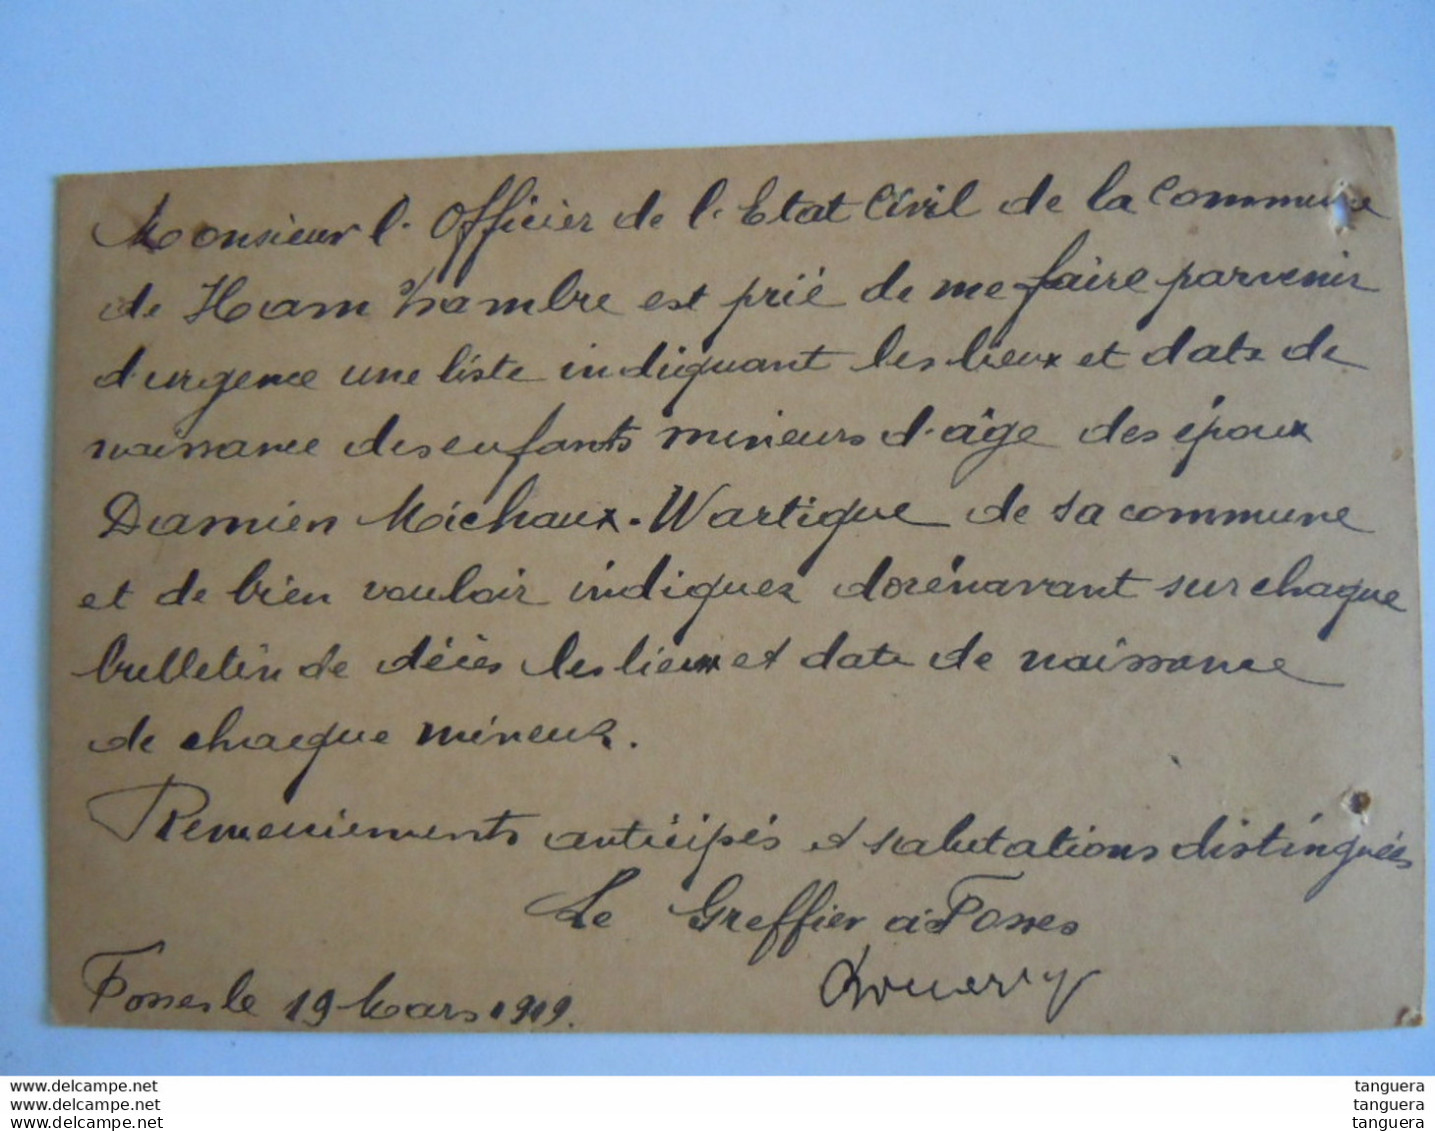 Monsieur l'Officier de l'Etat Civil de la Commune
de Ham s/Sambre est prié de me faire parvenir
d'urgence une liste indiquant les lieux et date de
naissance des enfants mineurs d'âge des époux
Damien Michaux-Wartique de sa commune
et de bien vouloir indiquer dorénavant sur chaque
bulletin de décès les lieux et date de naissance
de chaque mineur.
Remerciements anticipés et salutations distinguées
Le Greffier à Fosses
Fosses le 19 Mars 1919.
www.delcampe.net
www.delcampe.net
www.delcampe.net
tanguera
tanguera
tanguera